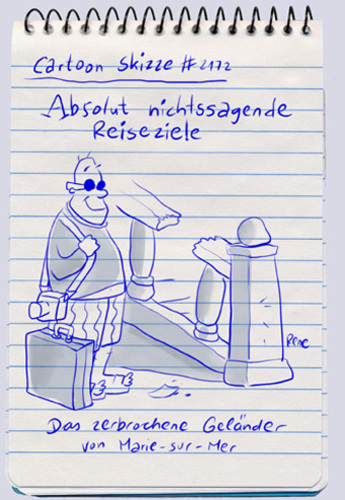 Cartoon Skizze #2172
Absolut nichtssagende
Reiseziele
Das zerbrochene Geländer
von Marie-sur-Mer